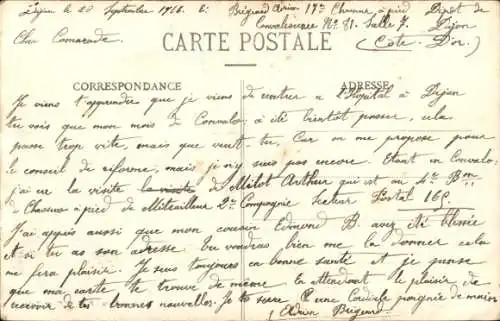 Dijon le 20 Septembre 1916. E: Brigard Adrien 17e Chasseur à pied Dépôt de
Convalescence No 81. Salle 7. Dijon
Cher Camarade. (Côte-D'or)
CARTE POSTALE
CORRESPONDANCE
ADRESSE
Je viens t'apprendre que je viens de rentrer à l'Hôpital à Dijon
tu vois que mon mois de Convalo, a été bientôt passer, cela
passe trop vite, mais que veut-tu, Car on me propose pour
le conseil de réforme, mais je n'y suis pas encore. Étant en Convalo,
j'ai eu la visite de Milot Arthur qui est au 4e Bon
de Chasseur à pied de Mitrailleur 2e Compagnie Secteur Postal 169.
J'ai appris aussi que mon cousin Edmond B. avez été blessé
et si tu as son adresse tu voudras bien me la donner cela
me fera plaisir. Je suis toujours en bonne santé et je pense
que ma carte te trouve de même. En attendant le plaisir de
recevoir de tes bonnes nouvelles. Je te serre une Cordiale poignée de main
Adrien Brigard